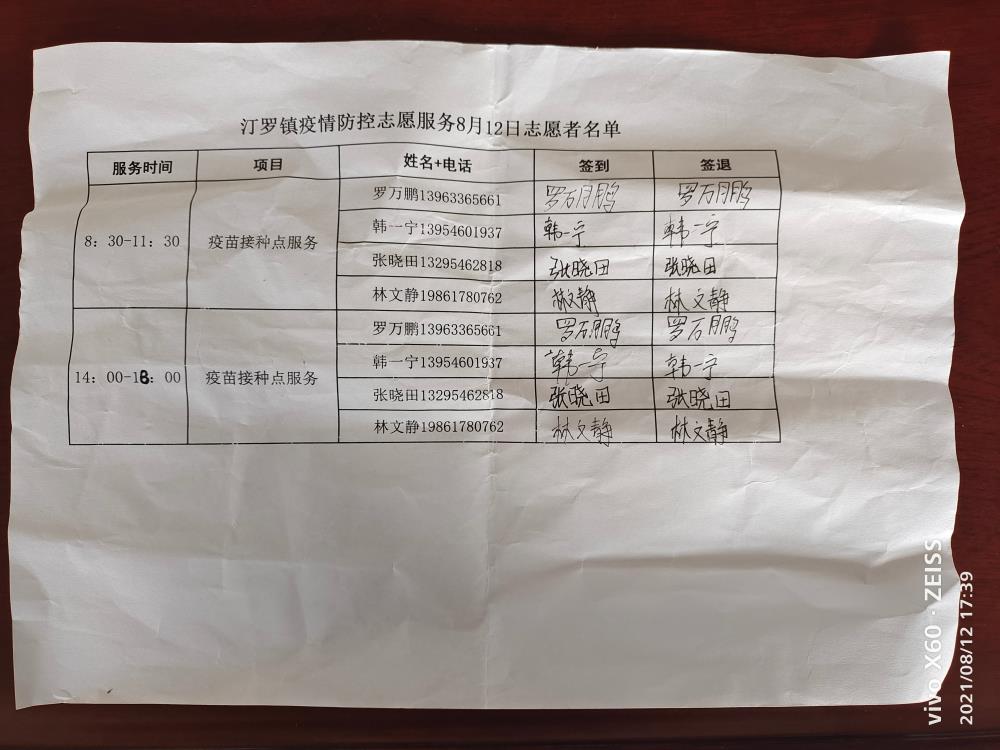 汀罗镇疫情防控志愿服务8月12日志愿者名单
服务时间 项目 姓名+电话 签到 签退
8：30-11：30 疫苗接种点服务 罗万鹏13963365661 罗万鹏 罗万鹏
韩一宁13954601937 韩一宁 韩一宁
张晓田13295462818 张晓田 张晓田
林文静19861780762 林文静 林文静
14：00-18：00 疫苗接种点服务 罗万鹏13963365661 罗万鹏 罗万鹏
韩一宁13954601937 韩一宁 韩一宁
张晓田13295462818 张晓田 张晓田
林文静19861780762 林文静 林文静
vivo X60 · ZEISS
2021/08/12 17:39